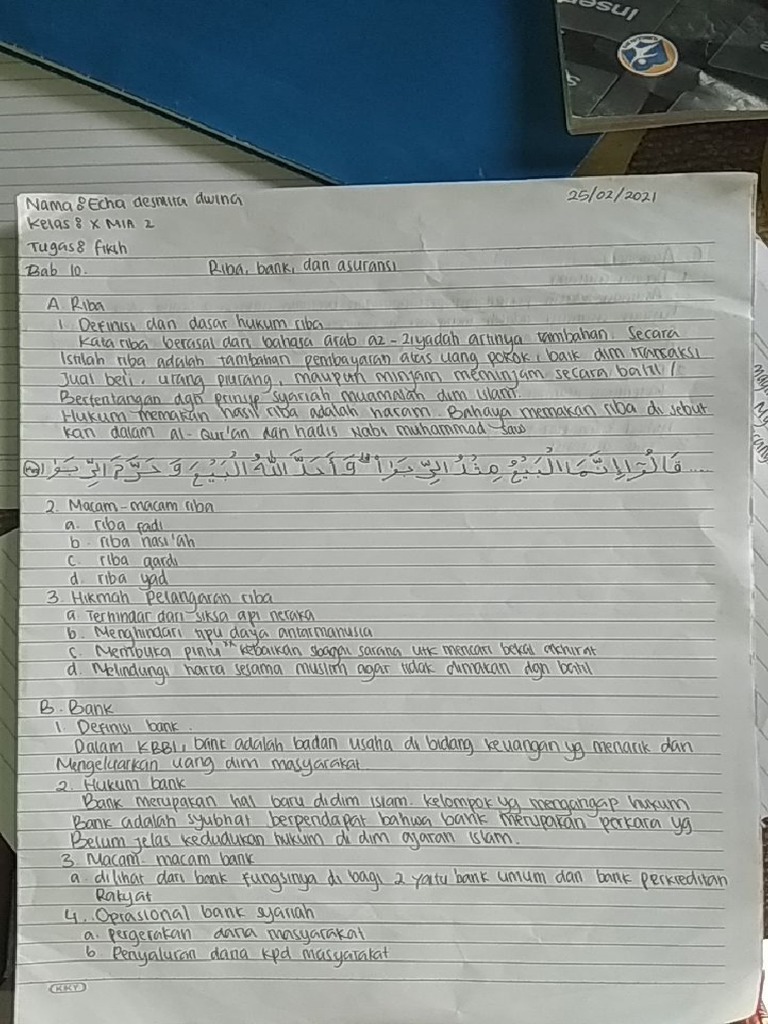 Inser
Nama : Echa desmira dwina
25/02/2021
Kelas : X MIA 2
Tugas : fikih
Bab 10. Riba, bank, dan asuransi
A Riba
1. Definisi dan dasar hukum riba
Kata riba berasal dari bahasa arab az-ziyadah artinya tambahan. Secara
Istilah riba adalah tambahan pembayaran atas uang pokok, baik dlm transaksi
Jual beli, utang piutang, maupun minjam meminjam secara batil /
Bertentangan dgn prinsip syariah muamalah dlm islam.
Hukum memakan hasil riba adalah haram. Bahaya memakan riba di sebut
kan dalam al-Qur'an dan hadis Nabi muhammad saw
2. Macam-macam riba
a. riba fadl
b. riba nasi'ah
c. riba qardi
d. riba yad
3. Hikmah pelangaran riba
a. Terhindar dari siksa api neraka
b. Menghindari tipu daya antarmanusia
c. Membuka pintu" kebaikan sbagai sarana utk mencari bekal akhirat
d. Melindungi harta sesama muslim agar tidak dimakan dgn batil
B. Bank
1. Definisi bank.
Dalam KBBI, bank adalah badan usaha di bidang keuangan yg menarik dan
Mengeluarkan uang dlm masyarakat.
2. Hukum bank
Bank merupakan hal baru didlm islam. kelompok yg mengangap hukum
Bank adalah syubhat berpendapat bahwa bank merupakan perkara yg
Belum jelas kedudukan hukum di dlm ajaran islam.
3. Macam-macam bank
a. dilihat dari bank fungsinya di bagi 2 yaitu bank umum dan bank perkreditan
Rakyat
4. Oprasional bank syariah
a. pergerakan dana masyarakat
b. Penyaluran dana kpd masyarakat
KIKY